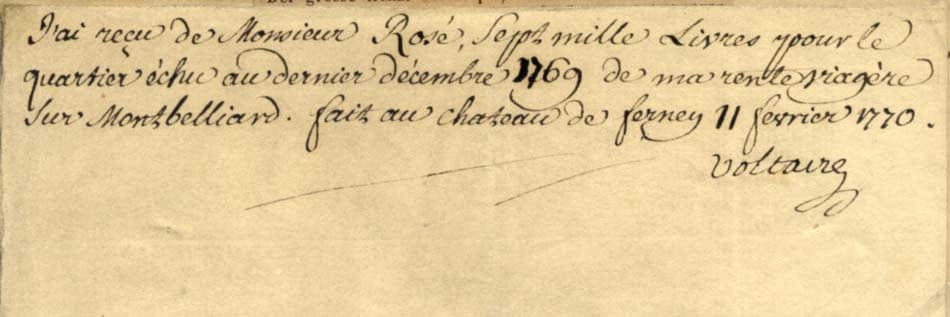 J'ai reçu de Monsieur Rosé, Sept mille Livres pour le
quartier échu au dernier décembre 1769 de ma rente viagère
sur Montbelliard. fait au chateau de ferney 11 fevrier 1770.
Voltaire